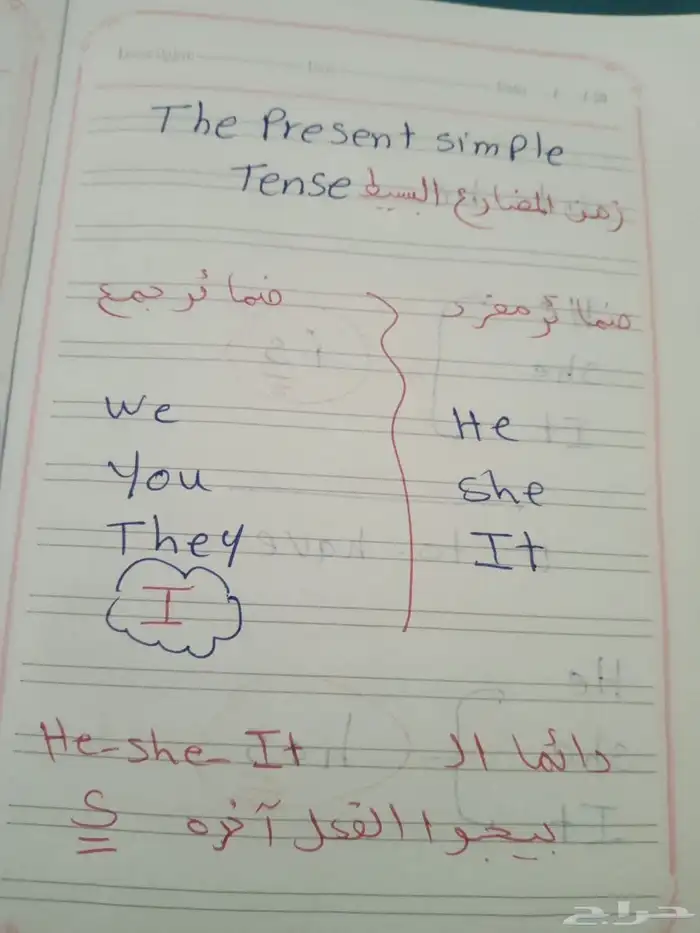 The Present simple
Tense زمن المضارع البسيط
ضمائر مفرد ضمائر جمع
He We
she You
It They
I
دائما ال He-she-It
بيجوا الفعل آخره S
حراج